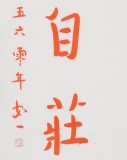 自莊
五六零年